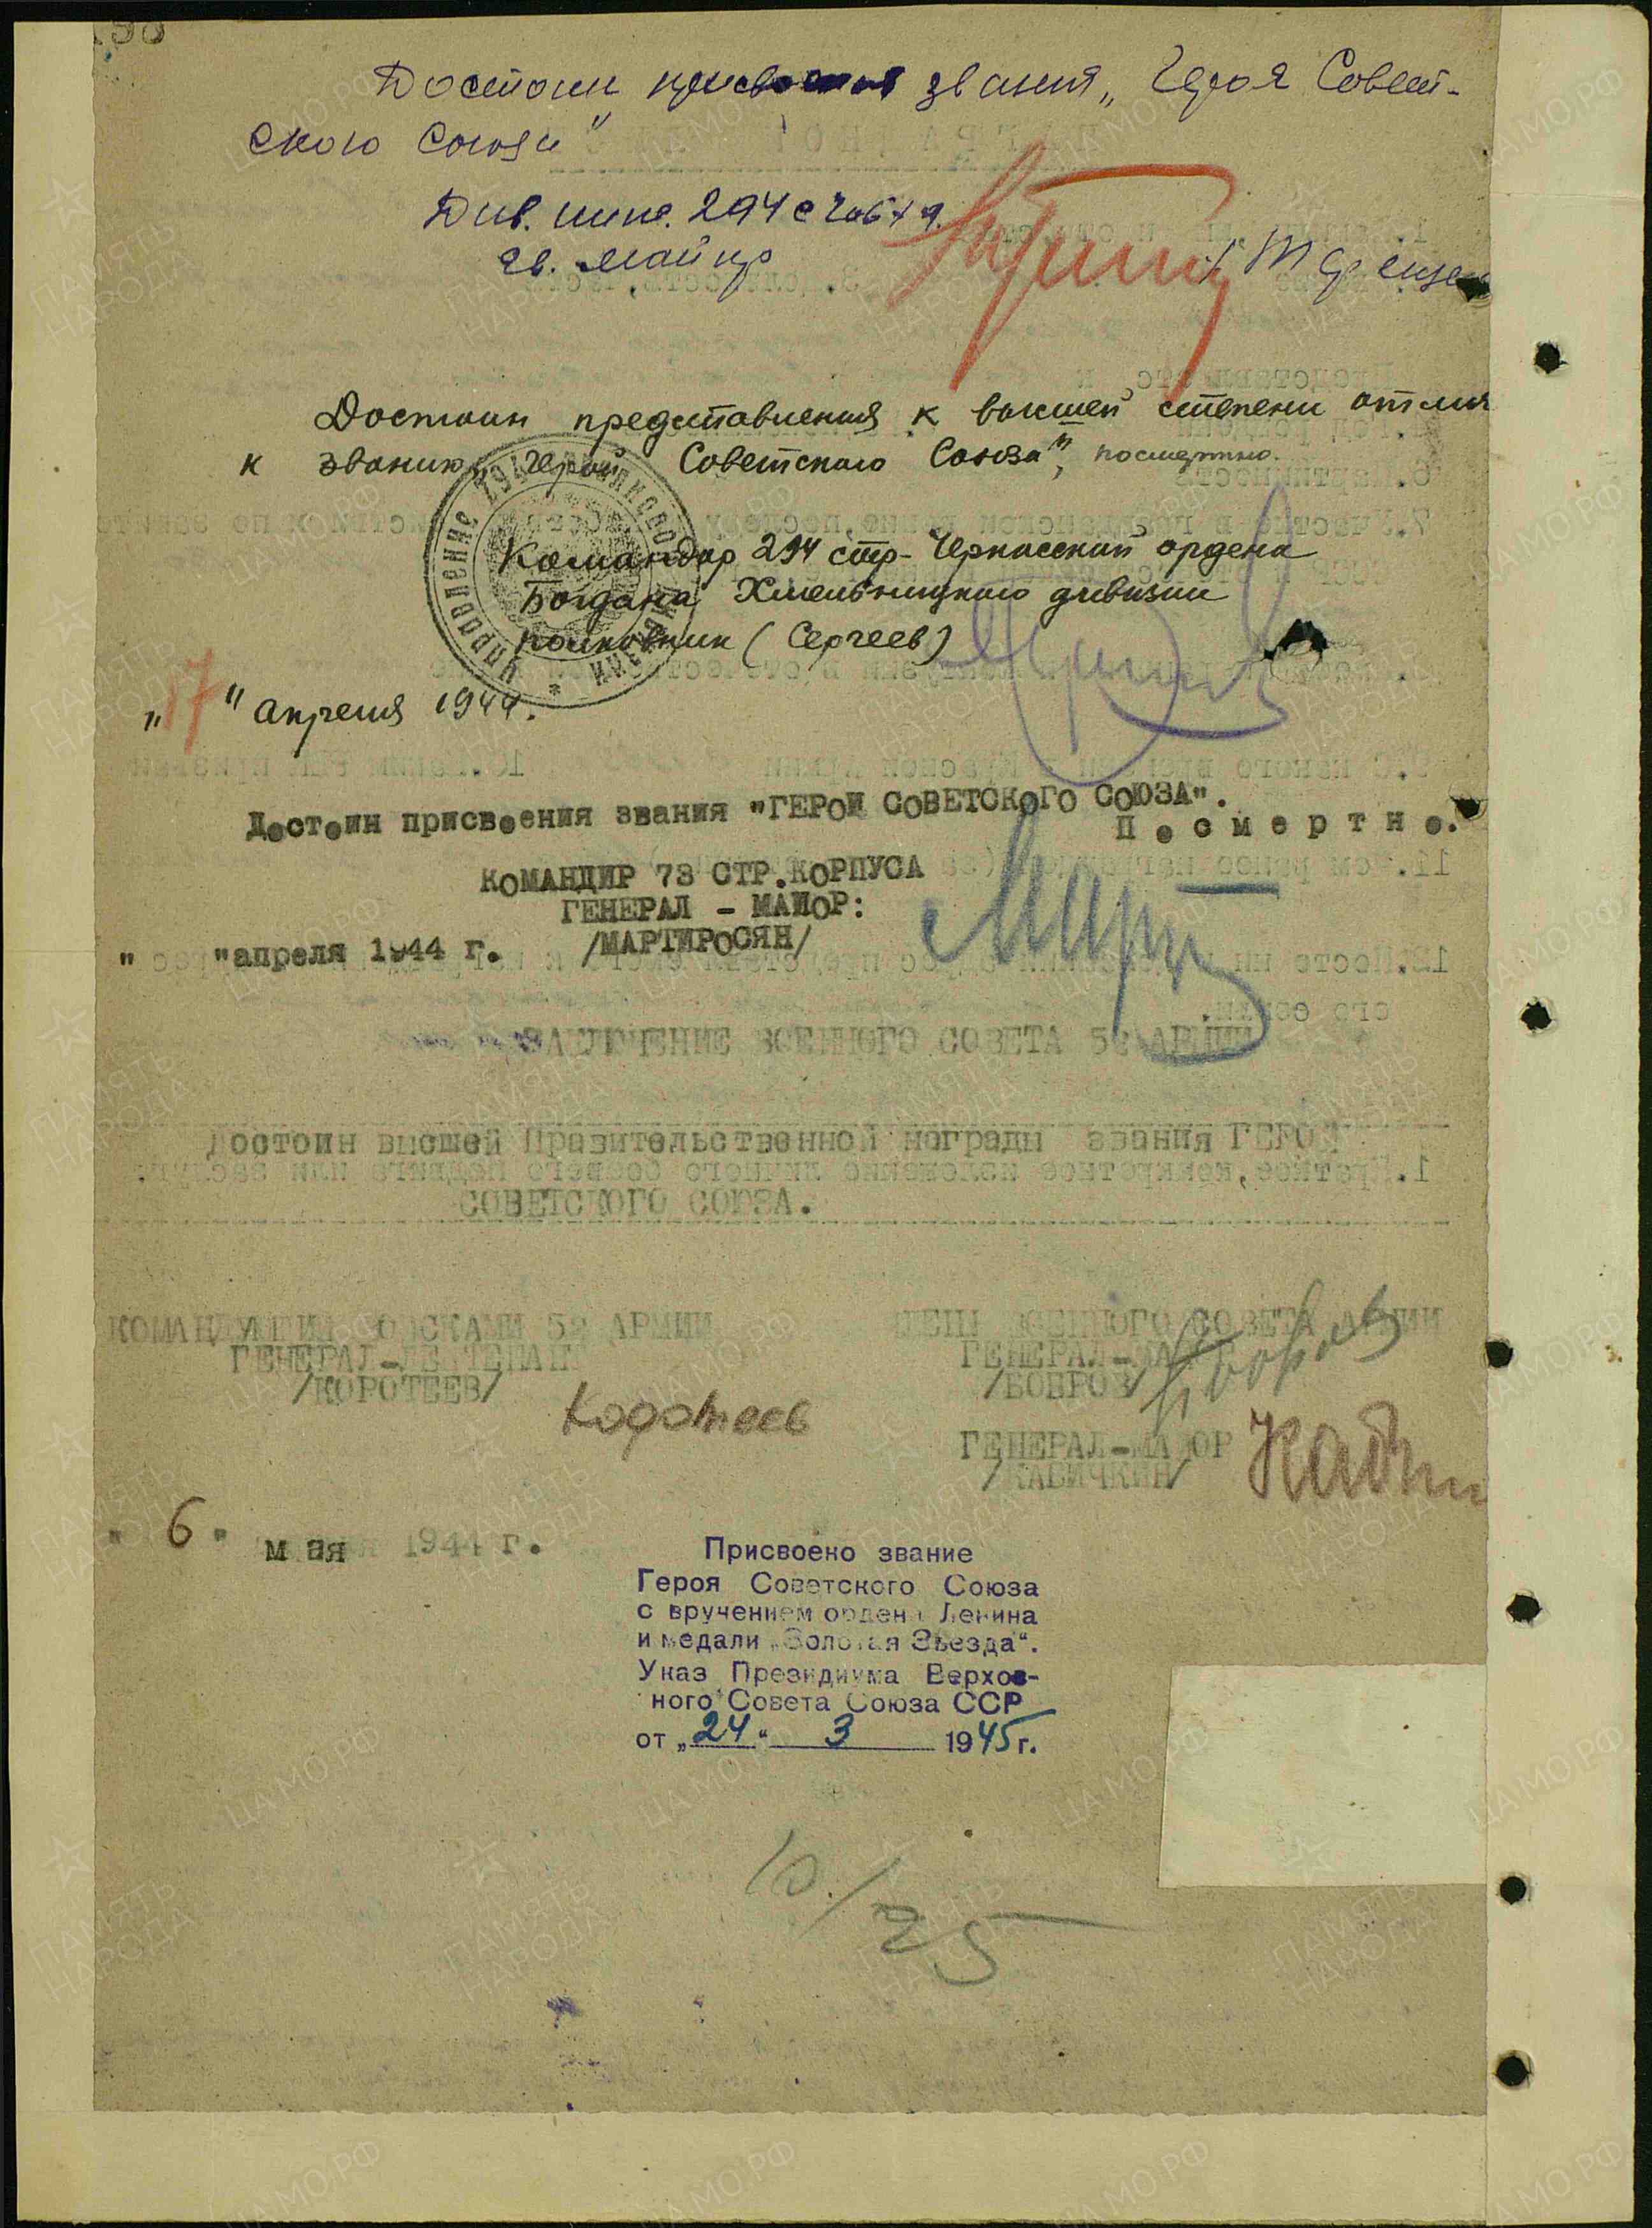 Достоин присвоения звания „Героя Совет-
ского Союза"
Див. инж. 294
гв. майор
Достоин представления к высшей степени отлич
к званию „Герой Советского Союза", посмертно.
Командир 294 стр. Черкасской ордена
Богдана Хмельницкого дивизии
полковник (Сергеев)
"17" апреля 1944.
Достоин присвоения звания "ГЕРОЙ СОВЕТСКОГО СОЮЗА".
Посмертно.
КОМАНДИР 73 СТР.КОРПУСА
ГЕНЕРАЛ - МАЙОР:
/МАРТИРОСЯН/
" "апреля 1944 г.
ЗАКЛЮЧЕНИЕ ВОЕННОГО СОВЕТА 52 АРМИИ
Достоин высшей Правительственной награды звания ГЕРОЙ
СОВЕТСКОГО СОЮЗА.
КОМАНДУЮЩИЙ ВОЙСКАМИ 52 АРМИИ
ГЕНЕРАЛ-ЛЕЙТЕНАНТ
/КОРОТЕЕВ/
Коротеев
ЧЛЕНЫ ВОЕННОГО СОВЕТА АРМИИ
ГЕНЕРАЛ-МАЙОР
/БОБРОВ/
ГЕНЕРАЛ-МАЙОР
/КАБИЧКИН/
"6" мая 1944 г.
Присвоено звание
Героя Советского Союза
с вручением ордена Ленина
и медали „Золотая Звезда".
Указ Президиума Верхов-
ного Совета Союза ССР
от „24" 3 1945г.
10/25
ПАМЯТЬ НАРОДА
ЦАМО.РФ